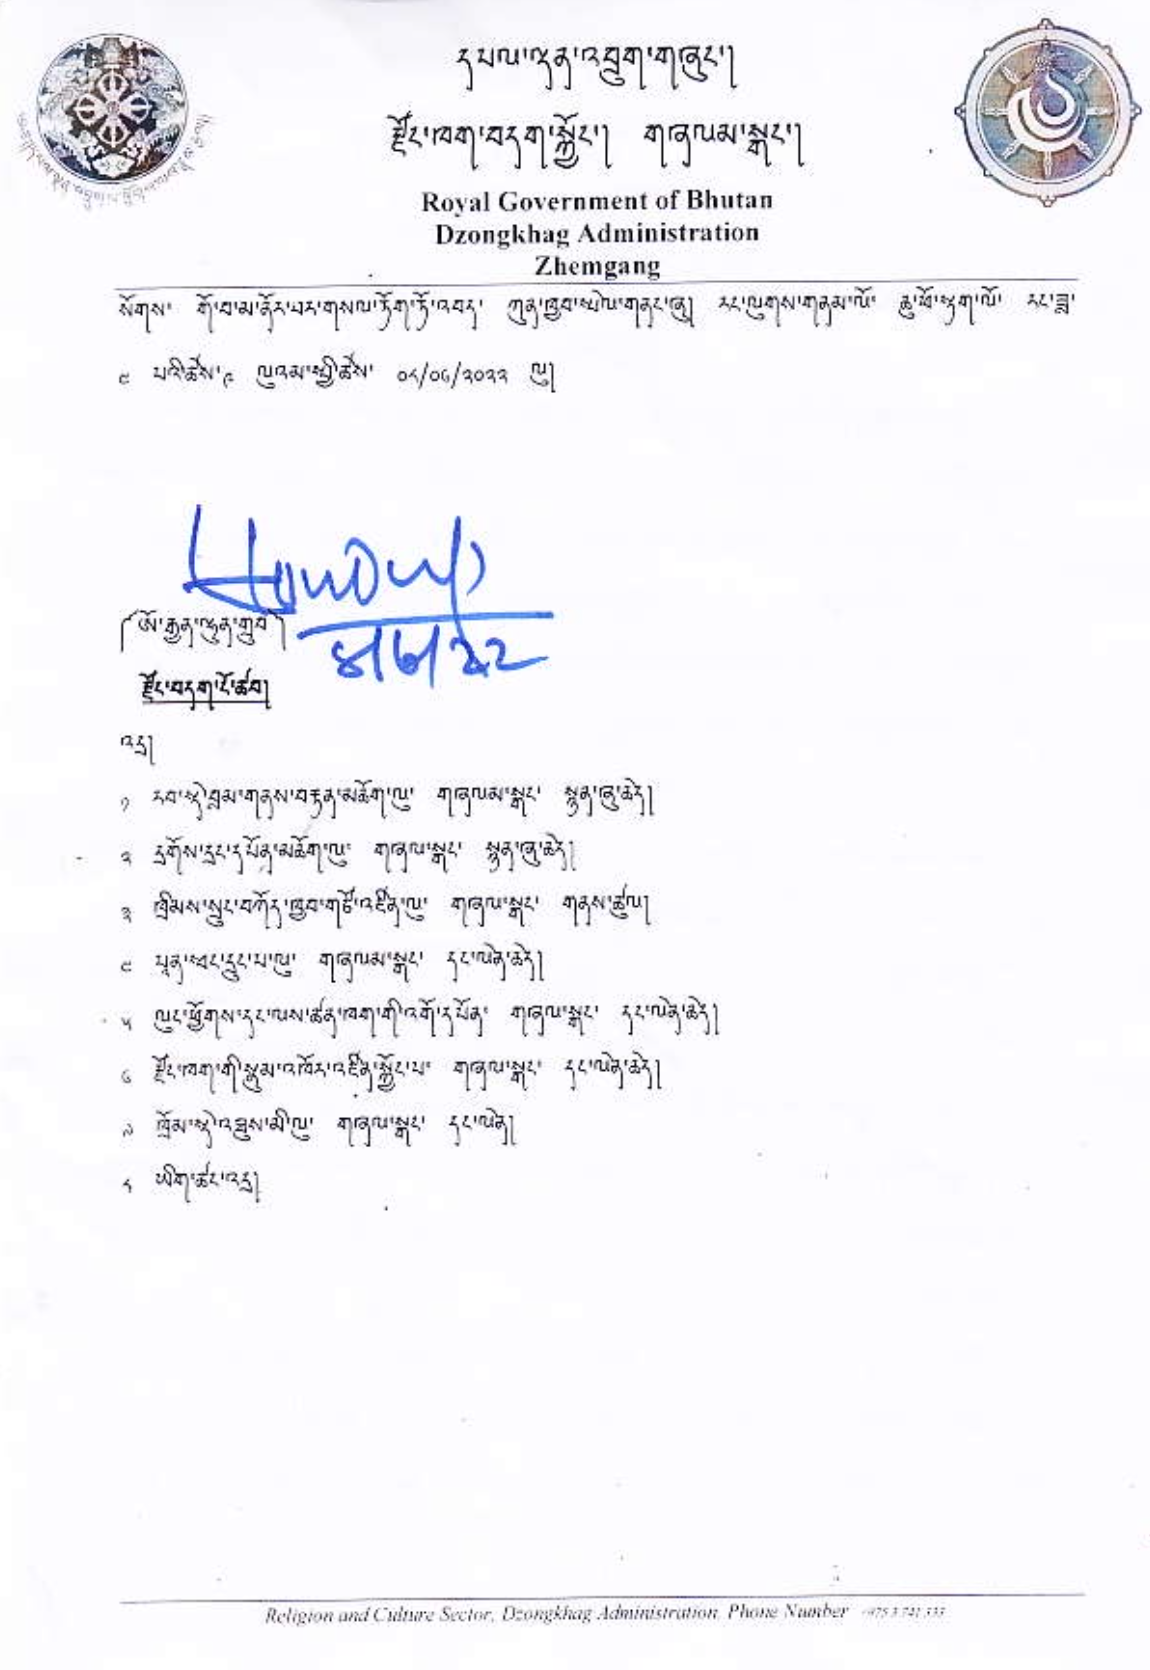 དཔལ་ལྡན་འབྲུག་གཞུང་།
རྫོང་ཁག་བདག་སྐྱོང་། གཞལམ་སྒང་།
Royal Government of Bhutan
Dzongkhag Administration
Zhemgang
སོགས་ གོ་བ་མ་ནོར་བར་གསལ་ཏོག་ཏོ་འབད་ ཀུན་ཁྱབ་སྤེལ་གནང་ཞུ། རང་ལུགས་གནམ་ལོ་ ཆུ་ཕོ་སྟག་ལོ་ རང་ཟླ་
༤ པའི་ཚེས་༩ ལུའམ་སྤྱི་ཚེས་ ༠༨/༠༦/༢༠༢༢ ལུ།
༼ ཨོ་རྒྱན་ལྷུན་གྲུབ ༽
རྫོང་བདག་ངོ་ཚབ།
འདྲ།
༡ རབ་སྡེ་བླམ་གནས་བརྟན་མཆོག་ལུ་ གཞལམ་སྒང་ སྙན་ཞུ་ཆེད།
༢ དྲགོས་དྲང་དཔོན་མཆོག་ལུ་ གཞལ་སྒང་ སྙན་ཞུ་ཆེད།
༣ ཁྲིམས་སྲུང་བཀོད་ཁྱབ་གཙོ་འཛིན་ལུ་ གཞལ་སྒང་ གནས་ཚུལ།
༤ པཱན་སྦང་དྲུང་པ་ལུ་ གཞལམ་སྒང་ དང་ལེན་ཆེད།
༥ ལུང་ཕྱོགས་དང་ལས་ཚན་ཁག་གི་འགོ་དཔོན་ གཞལ་སྒང་ དང་ལེན་ཆེད།
༦ རྫོང་ཁག་གི་སྣུམ་འཁོར་འཛིན་སྐྱོང་པ་ གཞལ་སྒང་ དང་ལེན་ཆེད།
༧ ཁྲོམ་སྡེ་འཐུས་མི་ལུ་ གཞལ་སྒང་ དང་ལེན།
༨ ཡིག་ཚང་འདྲ།
Religion and Culture Sector, Dzongkhag Administration, Phone Number